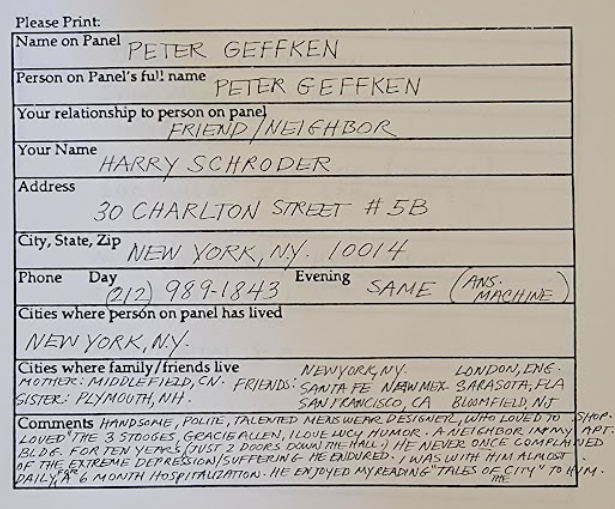 Please Print:
Name on Panel PETER GEFFKEN
Person on Panel's full name PETER GEFFKEN
Your relationship to person on panel
FRIEND/NEIGHBOR
Your Name
HARRY SCHRODER
Address
30 CHARLTON STREET #5B
City, State, Zip NEW YORK, N.Y. 10014
Phone Day (212) 989-1843 Evening SAME (ANS. MACHINE)
Cities where person on panel has lived
NEW YORK, N.Y.
Cities where family/friends live NEW YORK, N.Y. LONDON, ENG.
MOTHER: MIDDLEFIELD, CN. FRIENDS: SANTA FE NEW MEX. SARASOTA, FLA
SISTER: PLYMOUTH, N.H. SAN FRANCISCO, CA BLOOMFIELD, NJ
Comments HANDSOME, POLITE, TALENTED MENSWEAR DESIGNER, WHO LOVED TO SHOP.
LOVED "THE 3 STOOGES, GRACIE ALLEN, I LOVE LUCY, HUMOR. A NEIGHBOR IN MY APT.
BLDG. FOR TEN YEARS (JUST 2 DOORS DOWN THE HALL) HE NEVER ONCE COMPLAINED
OF THE EXTREME DEPRESSION/SUFFERING HE ENDURED. I WAS WITH HIM ALMOST
DAILY, FOR A 6 MONTH HOSPITALIZATION. HE ENJOYED MY READING "TALES OF THE CITY" TO HIM.